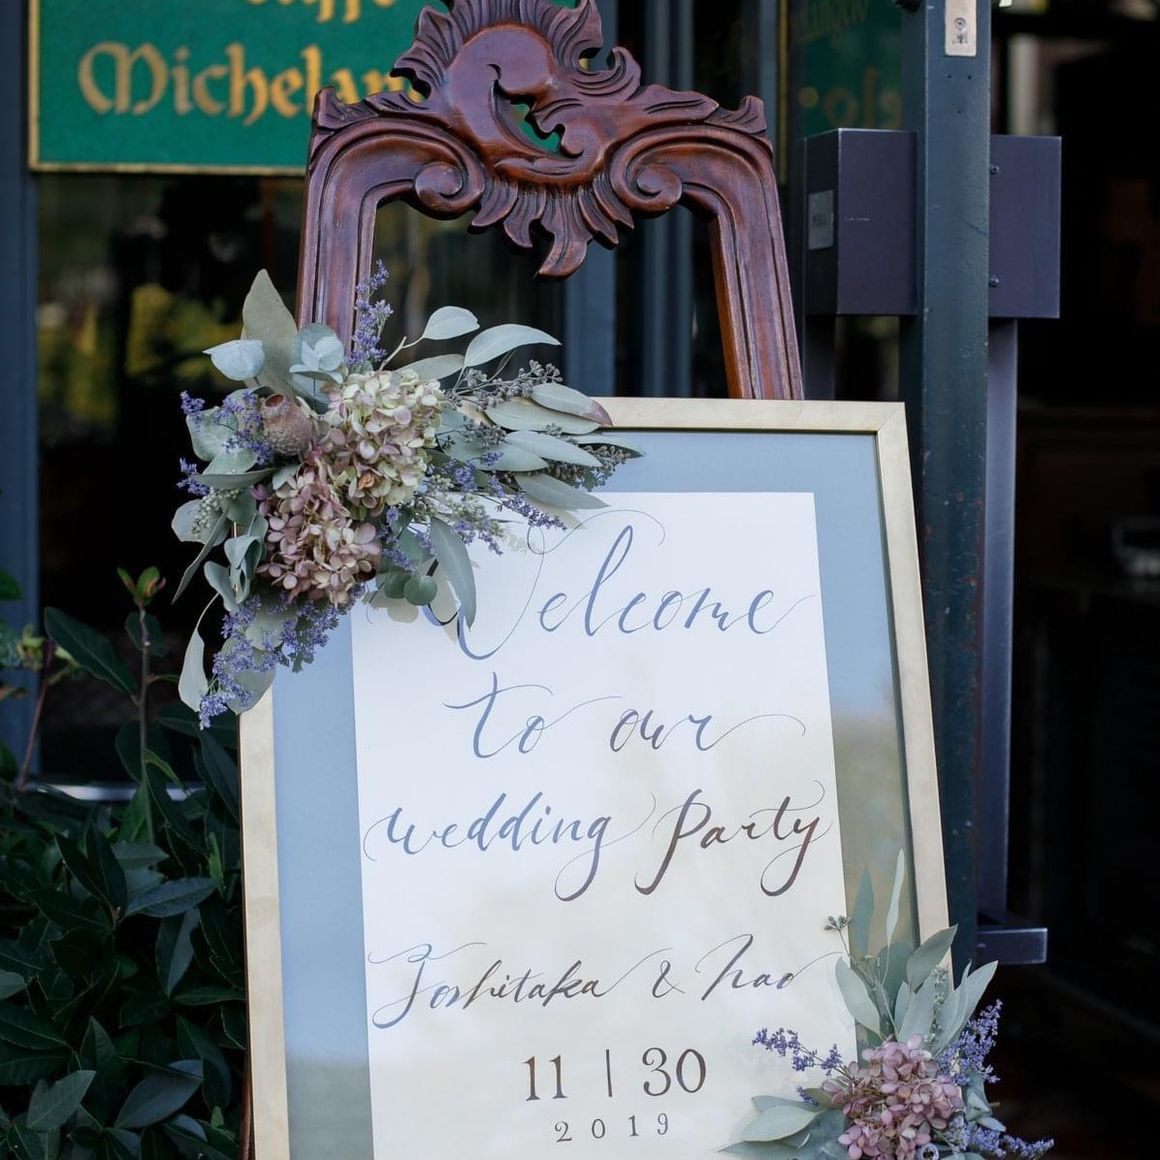 Michelan
Welcome
to our
wedding Party
Yoshitaka & Nao
11 | 30
2019
PULL